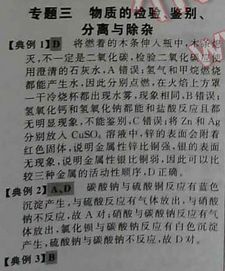 专题三 物质的检验、鉴别、
分离与除杂
【典例1】D 将燃着的木条伸入瓶中,木条熄
灭,不一定是二氧化碳,检验二氧化碳应使
用澄清的石灰水,A错误;氢气和甲烷燃烧
都能产生水,因此分别点燃,在火焰上方罩
一干冷烧杯都出现水雾,现象相同,B错误;
氢氧化钙和氢氧化钠都能和盐酸反应且都
无明显现象,不能鉴别,C错误;将Zn和Ag
分别放入CuSO₄溶液中,锌的表面会附着
红色固体,说明金属性锌比铜强,银的表面
无现象,说明金属性银比铜弱,因此可以比
较三种金属的活动性顺序,D正确。
【典例2】A、D 碳酸钠与硫酸铜反应有蓝色
沉淀产生,与硫酸反应有气体放出,与硝酸
钠不反应,故A对;硝酸与碳酸钠反应有气
体放出,氯化钡与碳酸钠反应有白色沉淀
产生,硫酸钠与碳酸钠不反应,故D对。
【典例3】B